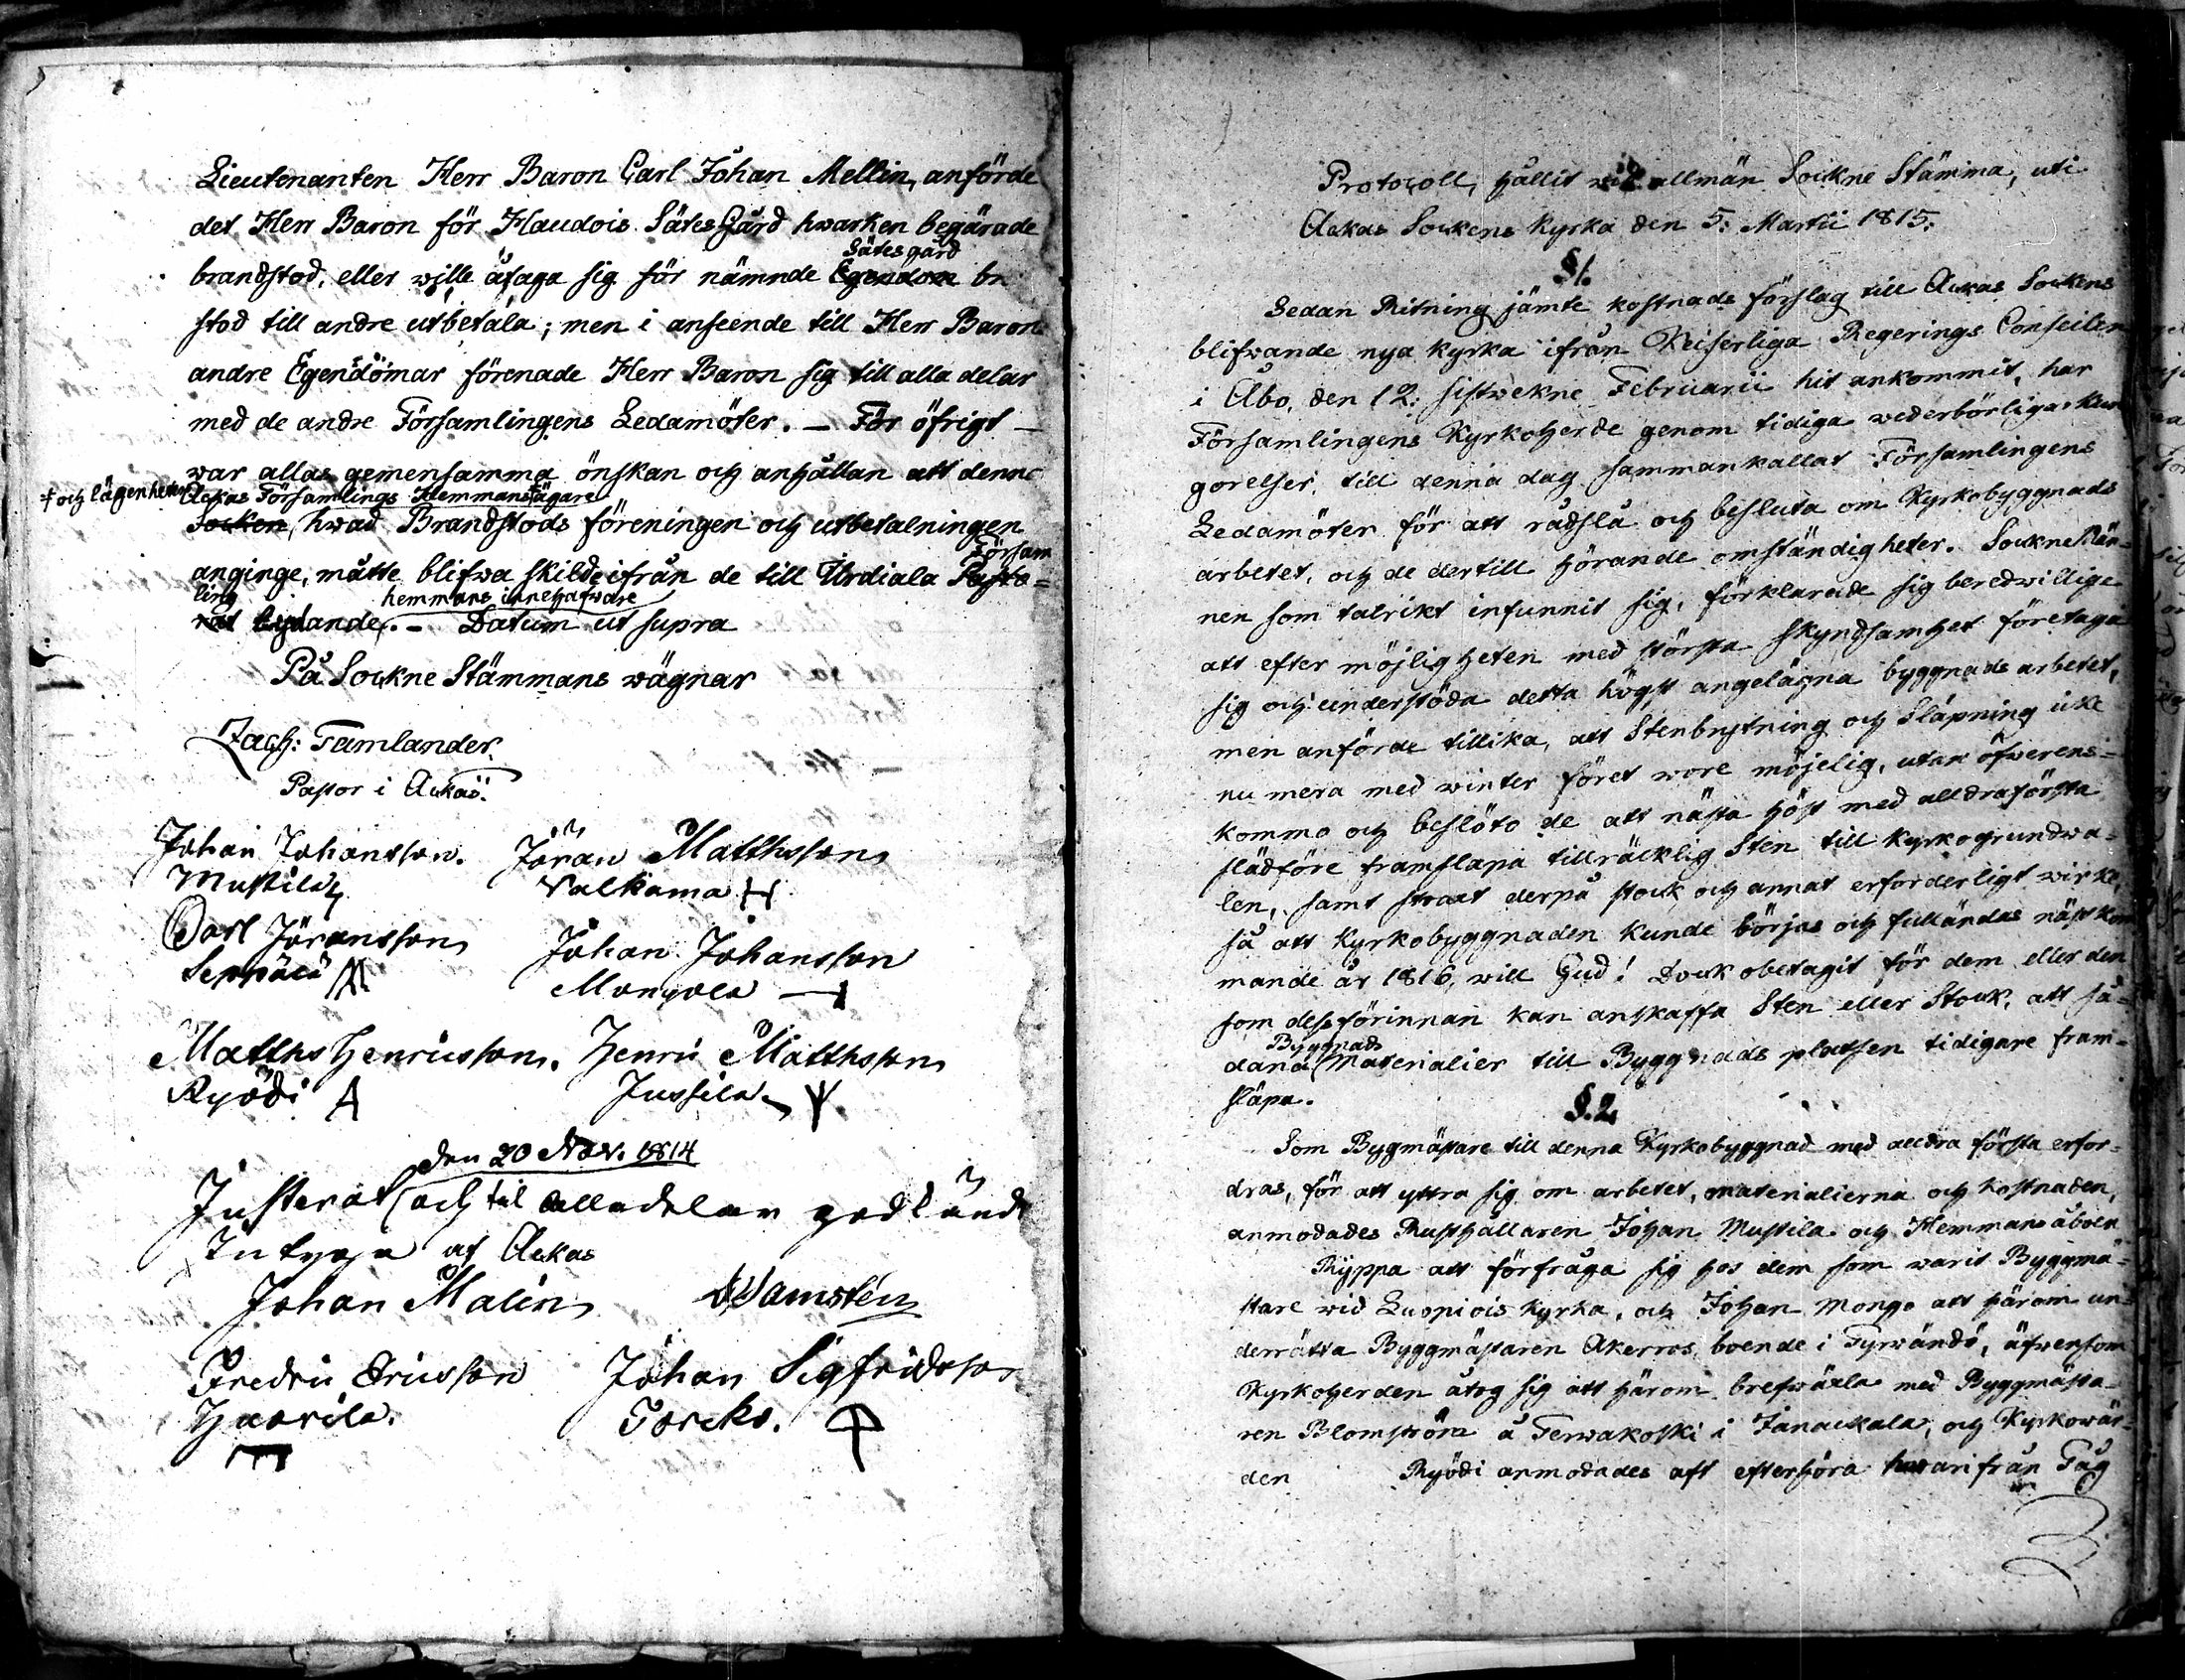 Lieutenanten Herr Baron Carl Johan Mellin, anförde
det Herr Baron för Haudois Sätes Gård hwarken begärade
Sätesgård
brandstod, eller wille åtaga sig för nämnde Egendom br
stod till andre utbetala; men i anseende till Herr Baron
andre Egendomar förenade Herr Baron sig till alla delar
med de andre Församlingens Ledamöter. — För öfrigt —
war allas gemensamma önskan och anhållan att denne
+ och lägenheters Ackas Församlings Hemmansägare
Socken hwad Brandstods föreningen och utbetalningen
Försam
anginge, måtte blifwa skilde ifrån de till Urdiala Pasto=
ling hemmans innehafware
rat lydande. — Datum ut supra
På Sockne Stämmans wägnar
Zach: Tamlander
Pastor i Ackas.
Johan Johansson. Jöran Matthsson
Mustila Valkama
Carl Jöransson Johan Johansson
Seppälä Mongola
Matths Henricsson. Henric Matthsson
Ryödi Jussila
den 20 Nov. 1814
Justerat och til alla delar godkändt
Intyga af Ackas
Johan Malin Wamstén
Fredric Ericsson Johan Sigfridsson
Huorila. Toreko.
Protocoll, hållit wid allmän Sockne Stämma, uti
Ackas Sockens Kyrka den 5: Martii 1815.
§1.
Sedan Ritning jämte kostnads förslag till Ackas Sockens
blifwande nya Kyrka ifrån Keiserliga Regerings Conseilen
i Åbo, den 12: sistwekne Februarii hit ankommit, har
Församlingens Kyrkoherde genom tidiga wederbörliga kun
gorelser, till denna dag sammankallat Församlingens
Ledamöter för att rådslå och besluta om Kyrkobyggnads
arbetet, och de dertill hörande omständigheter. Sockne Män=
nen som talrikt infunnit sig, förklarade sig beredwillige
att efter möjligheten med största skyndsamhet företaga
sig och understöda detta högst angelägna byggnads arbetet,
men anförde tillika, att Stenbrytning och Släpning icke
nu mera med winter föret wore möjelig, utan öfwerens=
kommo och beslöto de att nästa höst med alldraförsta
slädföre framslapa tillräcklig Sten till Kyrkogrundwa=
len, samt straxt derpå stock och annat erforderligt wirke,
så att Kyrkobyggnaden kunde börjas och fulländas nästkom
mande år 1816, will Gud! Dock obetagit för dem eller den
som dessförinnan kan anskaffa Sten eller Stock, att så=
Byggnads
dana Materialier till Byggnads platsen tidigare fram=
släpa.
§.2.
Som Bygmästare till denna Kyrkobyggnad med alldra första erfor=
dras, för att yttra sig om arbetet, materialierna och kostnaden,
anmodades Rusthållaren Johan Mustila och Hemmans åboen
Ryppa att förfråga sig hos dem som warit Byggmä=
stare wid Luopiois Kyrka, och Johan Mongo att härom un=
derrätta Byggmästaren Akerros, boende i Tyrwändö, äfwensom
Kyrkoherden åtog sig att härom brefwäxla med Byggmästa=
ren Blomström å Terwakoski i Janackala, och Kyrkowär=
den Ryödi anmodades att efterhöra hwarifrån Tåg